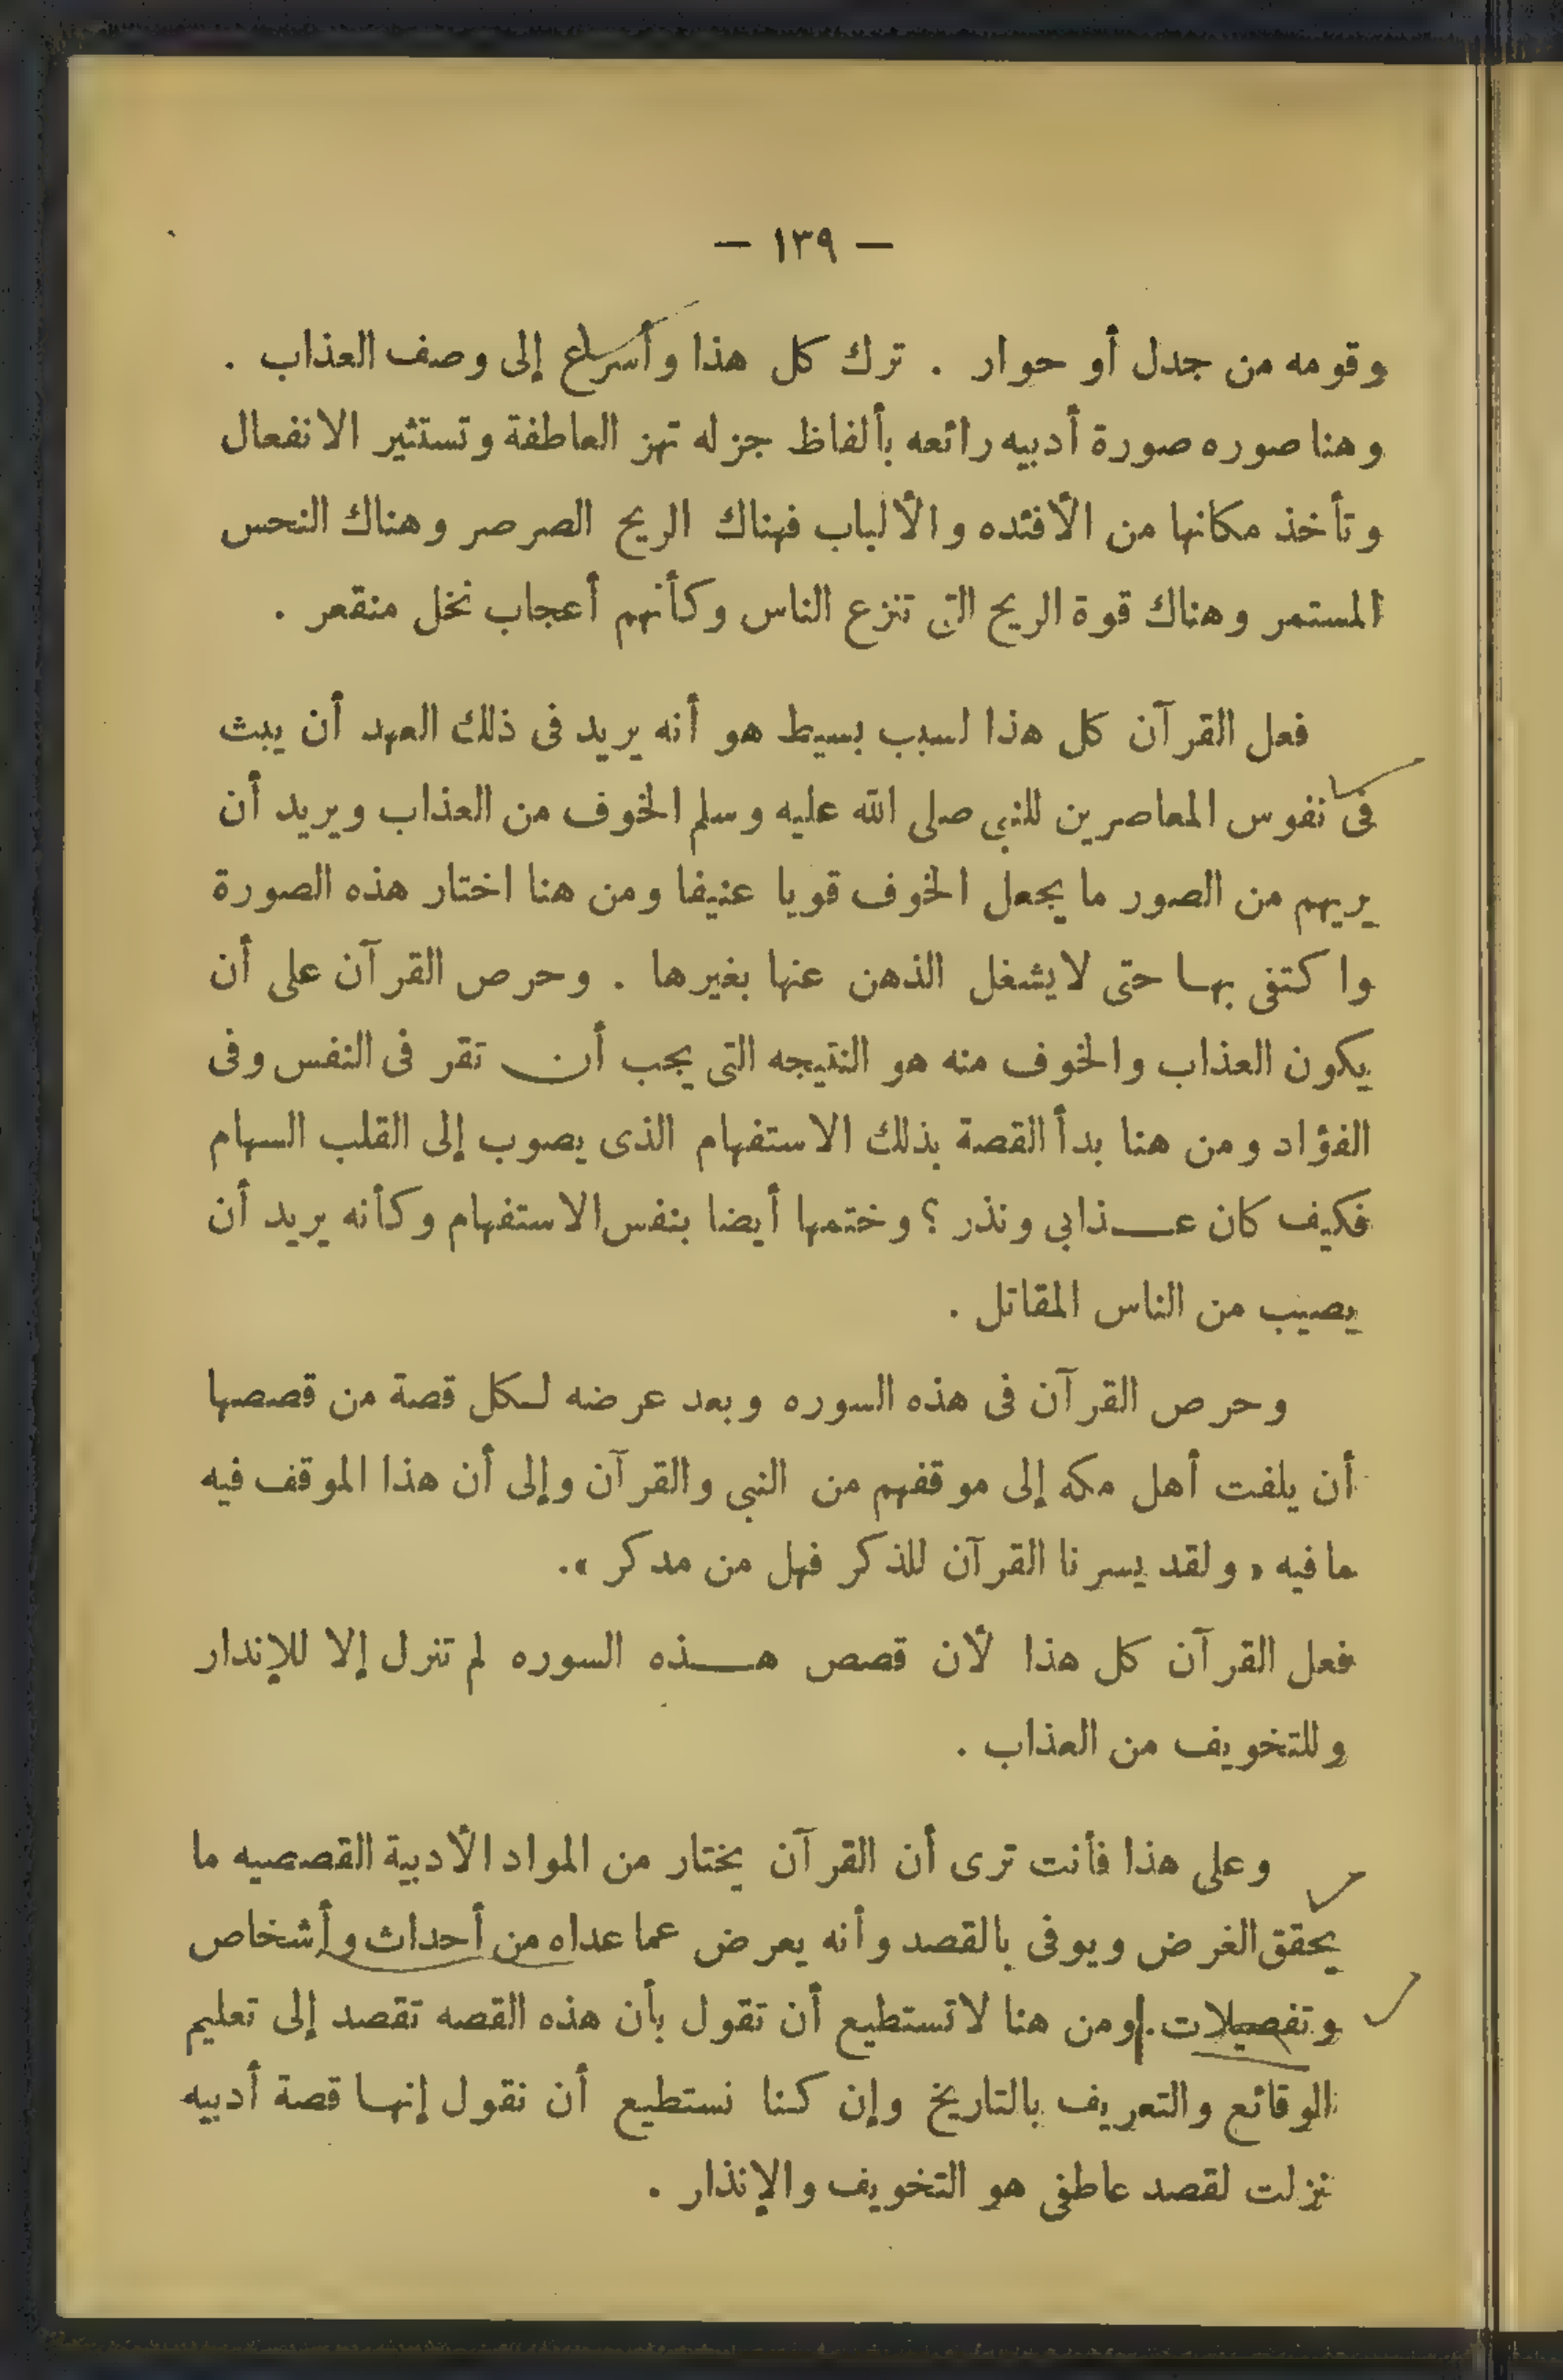 — ١٣٩ —
وقومه من جدل أو حوار . ترك كل هذا وأسراع إلى وصف العذاب .
وهنا صوره صورة أدبيه رائعه بألفاظ جزله تهز العاطفة وتستثير الانفعال
وتأخذ مكانها من الأفئده والألباب فهناك الريح الصرصر وهناك النحس
المستمر وهناك قوة الريح التى تنزع الناس وكأنهم أعجاب نخل منقعر .
فعل القرآن كل هذا لسبب بسيط هو أنه يريد فى ذلك العهد أن يبث
فى نفوس المعاصرين للنبى صلى الله عليه وسلم الخوف من العذاب ويريد أن
يريهم من الصور ما يجعل الخوف قويا عنيفا ومن هنا اختار هذه الصورة
واكتفى بها حتى لايشغل الذهن عنها بغيرها . وحرص القرآن على أن
يكون العذاب والخوف منه هو النتيجه التى يجب أن تقر فى النفس وفى
الفؤاد ومن هنا بدأ القصة بذلك الاستفهام الذى يصوب إلى القلب السهام
فكيف كان عـــذابى ونذر ؟ وختمها أيضا بنفس الاستفهام وكأنه يريد أن
يصيب من الناس المقاتل .
وحرص القرآن فى هذه السوره وبعد عرضه لكل قصة من قصصها
أن يلفت أهل مكه إلى موقفهم من النبى والقرآن وإلى أن هذا الموقف فيه
ما فيه « ولقد يسرنا القرآن للذكر فهل من مدكر » .
فعل القرآن كل هذا لأن قصص هـــذه السوره لم تنزل إلا للإندار
وللتخويف من العذاب .
وعلى هذا فأنت ترى أن القرآن يختار من المواد الأدبية القصصيه ما
يحقق الغرض ويوفى بالقصد وأنه يعرض عما عداه من أحداث وأشخاص
وتفصيلات . ومن هنا لاتستطيع أن تقول بأن هذه القصه تقصد إلى تعليم
الوقائع والتعريف بالتاريخ وإن كنا نستطيع أن نقول إنها قصة أدبيه
نزلت لقصد عاطفى هو التخويف والإنذار .